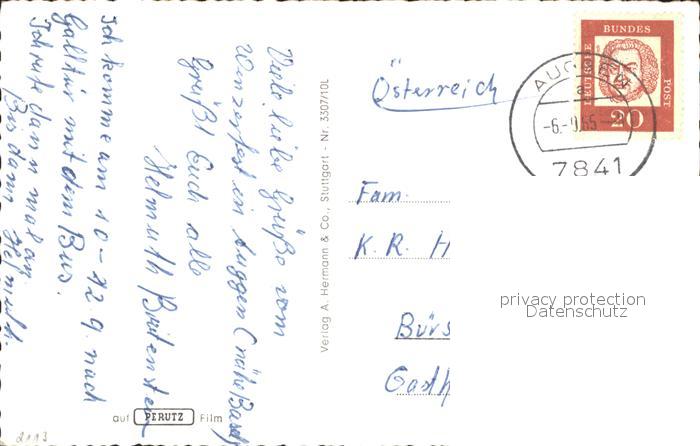 Viele liebe Grüße vom
Winzerfest in Auggen (nähe Basel)
Grüßt Euch alle
Helmuth Breitenstein
Ich komme am 10-12.9. nach
Galltür mit dem Bus.
Ich rufe dann mal an.
Bis dann Helmuth.
Verlag A. Hermann & Co., Stuttgart - Nr. 3307/10L
auf PERUTZ Film
2113
Österreich
Fam.
K. R. H
Bürs
Gasth
DEUTSCHE BUNDES POST
20
AUGGEN
a
-6.-9.65-
7841
privacy protection
Datenschutz